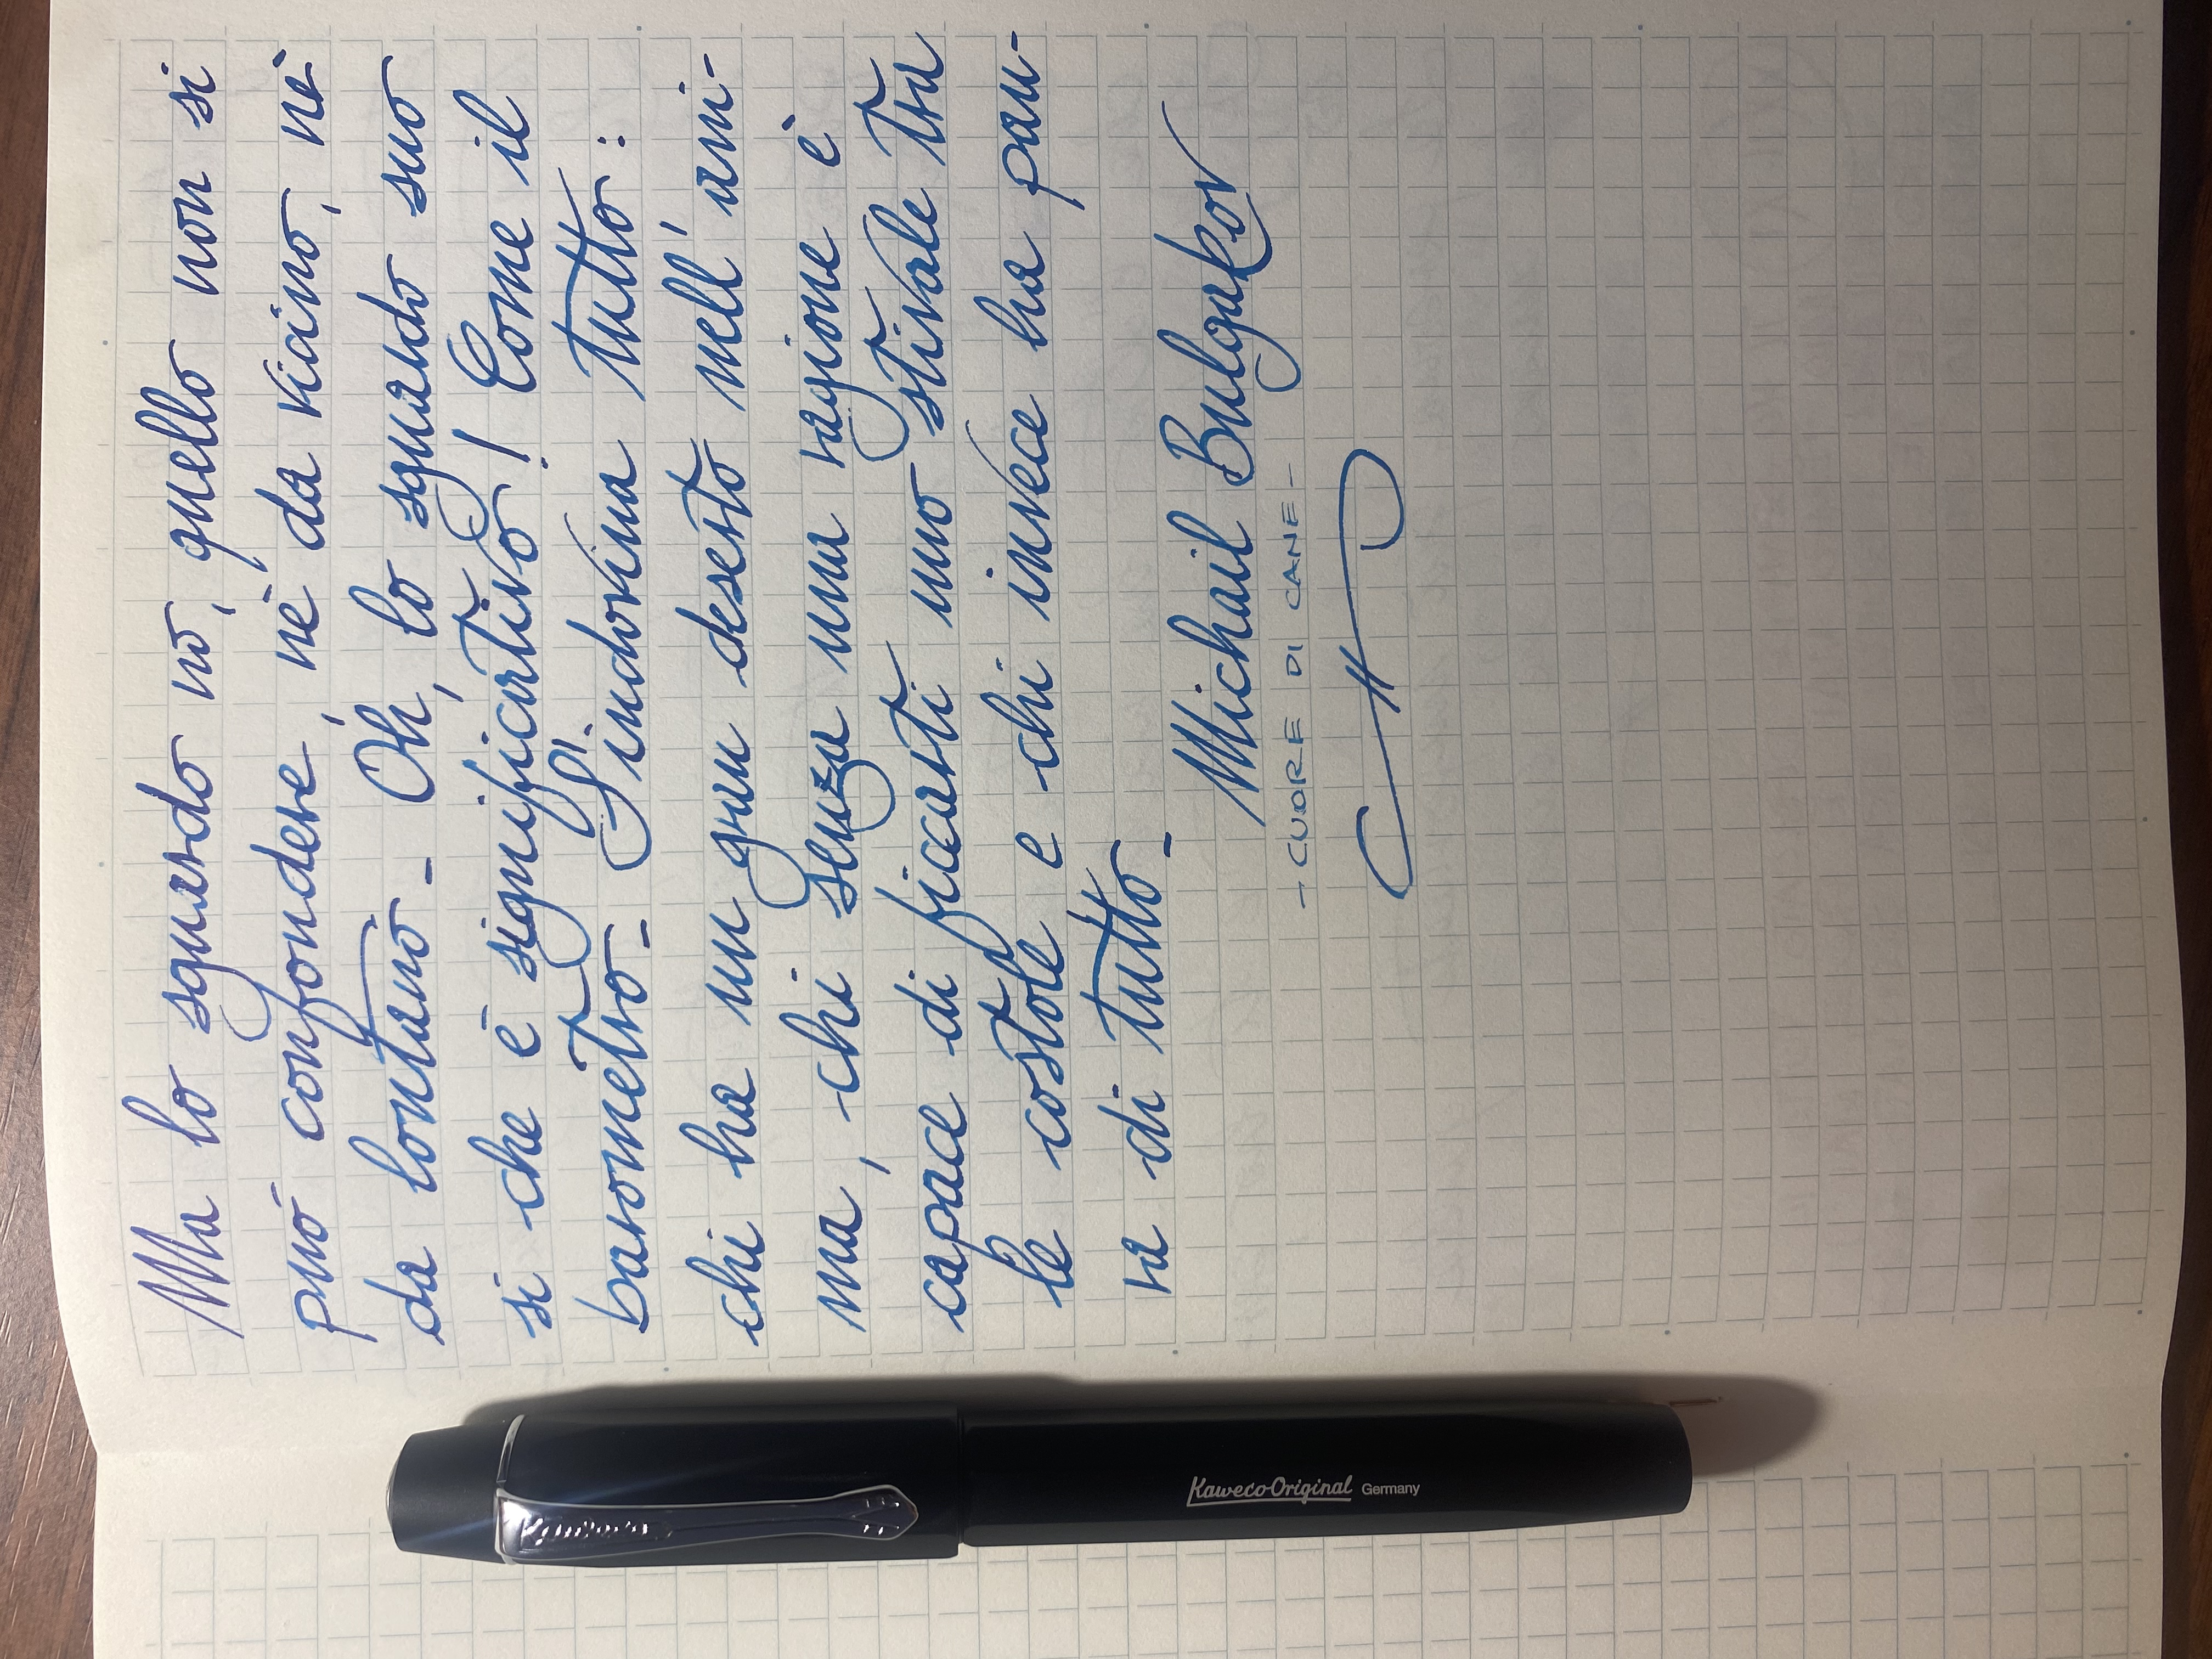 Ma lo sguardo no, quello non si
può confondere, nè da vicino, nè
da lontano - Oh, lo sguardo suo
sì che è significativo! Come il
barometro - S'indovina tutto:
chi ha un gran deserto nell'ani-
ma, chi senza una ragione è
capace di ficcarti uno stivale tra
le costole e chi invece ha pau-
ra di tutto -
Michail Bulgakov
- CUORE DI CANE -
Kaweco Original Germany